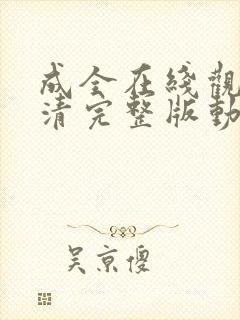 成全在綫觀
清完整版動
吴京傻